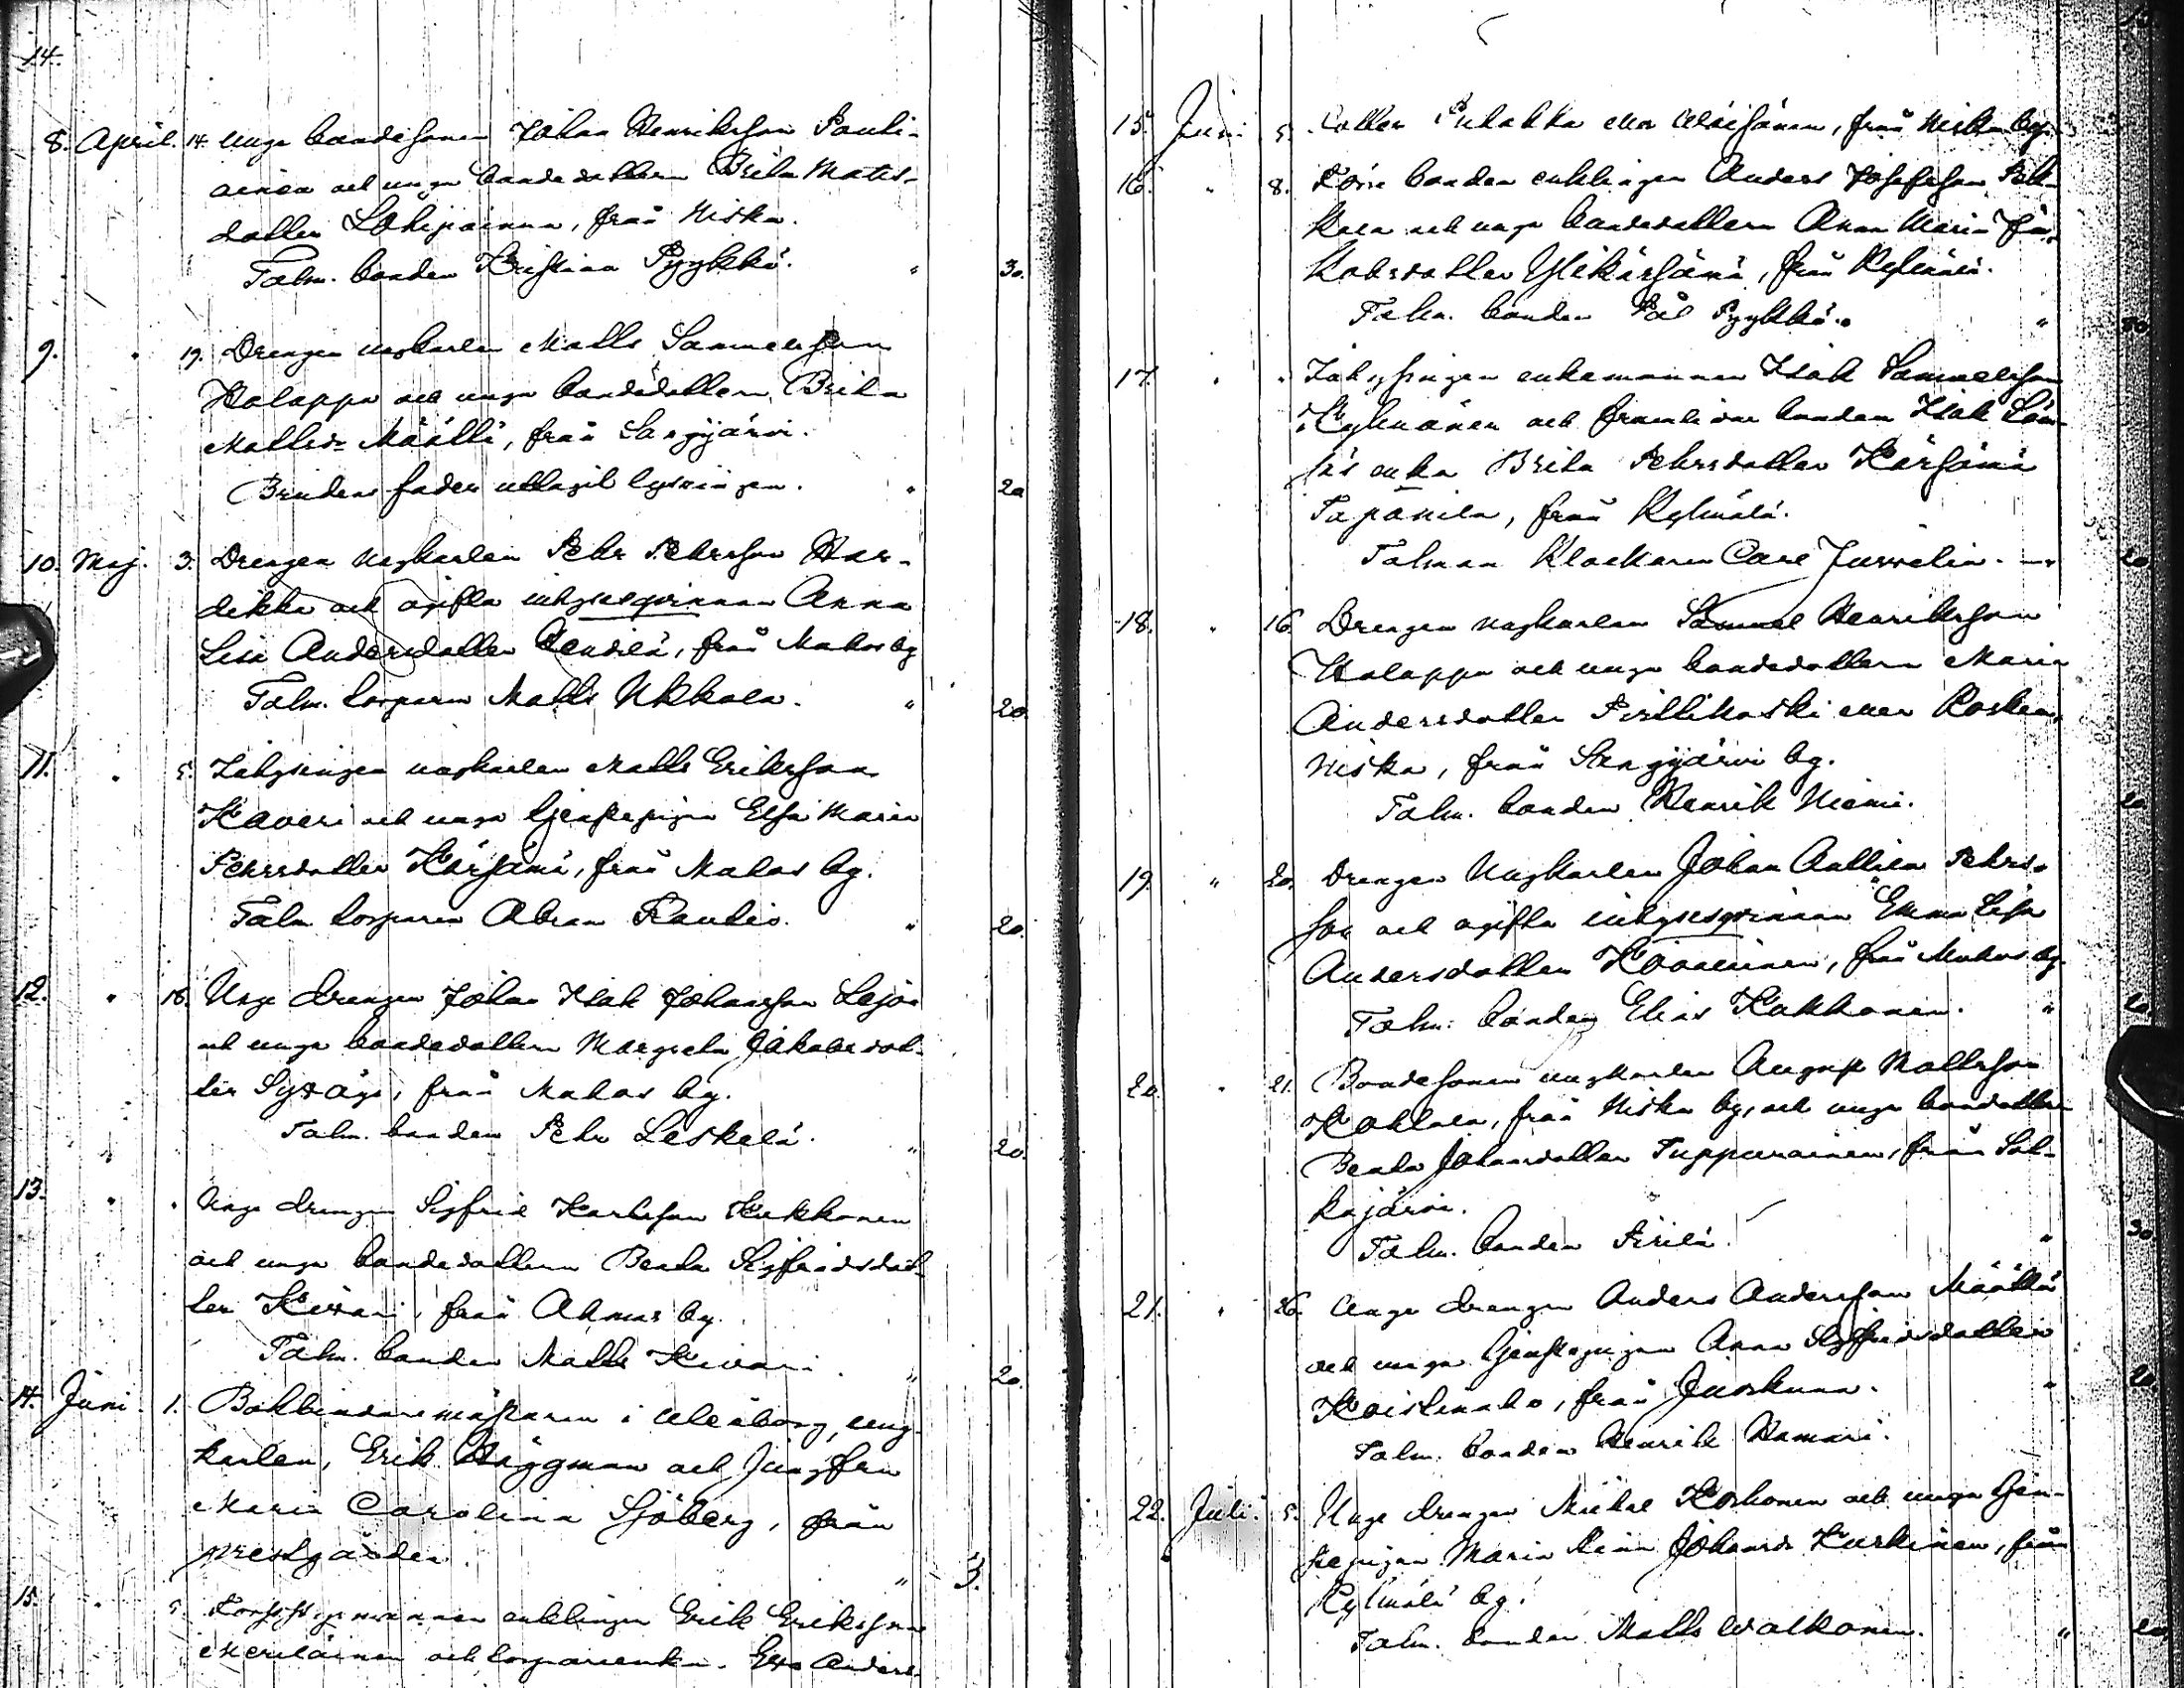 14.
8. April. 14. Unge bondesonen Johan Henriksson Pauli-
ainen och unga bondedottern Brita Mats-
dotter Lohipainen, från Niska.
Talm. bonden Kristian Pyykkö. " 30.
9. " 19. Drengen ungkarlen Matts Samuelsson
Holappa och unga bondedottern Brita
Mattsd. Määttä, från Sangijärvi.
Brudens fader uttagit lysningen. " 20
10. Maj. 3. Drengen ungkarlen Pehr Pehrsson Har-
dikka och ogifta inhysesqvinnan Anna
Lisa Andersdotter Heudilä, från Muhos by
Talm. torparen Matts Ukkola. " 20.
11. " 5. Inhysingen ungkarlen Matts Eriksson
Kaveri och unga tjenstepigan Elsa Maria
Pehrsdotter Kärsämä, från Muhos by.
Talm torparen Abram Rautio. " 20.
12. " 18. Unge drengen Johan Isak Johansson Lejon
och unga bondedottern Margreta Jakobsdot-
ter Syväoja, från Muhos by.
Talm. bonden Pehr Leskelä. " 20.
13. " " Unge drengen Sigfrid Karlsson Kukkonen
och unga bondedottern Beata Sigfridsdot-
ter Kivari, från Ahmas by.
Talm. bonden Matts Kivari " 20.
14. Juni. 1. Bokbindaremästaren i Uleåborg, ung-
karlen, Erik Häggman och Jungfru
Maria Carolina Sjöberg, från
prestgården. " 3.
15. " 5. enklingen Erik Eriksson
Meriläinen och torpareenkan Anders-
15. Juni 5. dotter Pulakka från Niska by.
16. " 8. bonden enklingen Anders Josefsson Pek-
kala och unga bondedottern Anna Maria Ja-
kobsdotter Ylikärsämä, från Kylmälä.
Talm. bonden Pål Pyykkö. "
17. " " Inhysingen enkemannen Isak Samuelsson
Kylmänen och framlidne bonden Isak
enka Brita Pehrsdotter Kärsämä
Tapanila, från Kylmälä.
Talman Klockaren Carl Juvelin. " 20
18. " 16. Drengen ungkarlen Samuel Henriksson
Holappa och unga bondedottern Maria
Andersdotter Pirttikoski eller Kosken-
niska, från Sangijärvi by.
Talm. bonden Henrik Niemi. 20
19. " 20. Drengen Ungkarlen Johan Anttila Pehrs-
son och ogifta inhysesqvinnan Emma Lisa
Andersdotter från Muhos by.
Talm. bonden Elias Kukkonen. " 20
20. " 21. Bondesonen ungkarlen August Mattsson
från Niska by, och unga bondedottern
Beata Johansdotter Tuppurainen, från Sot-
kajärvi.
Talm. bonden Pirilä. " 30
21. " 26. Unge drengen Anders Andersson Määttä
och unga tjenstepigan Anna Sigfridsdotter
Koistinaho, från Juorkuna. " 20.
Talm. bonden Henrik Hamari.
22. Juli. 5. Unge drengen Mickel Korhonen och unga tjen-
stepigan Maria Johansd. Kurkinen, från
Kylmälä by.
Talm. bonden Matts Walkonen. " 20